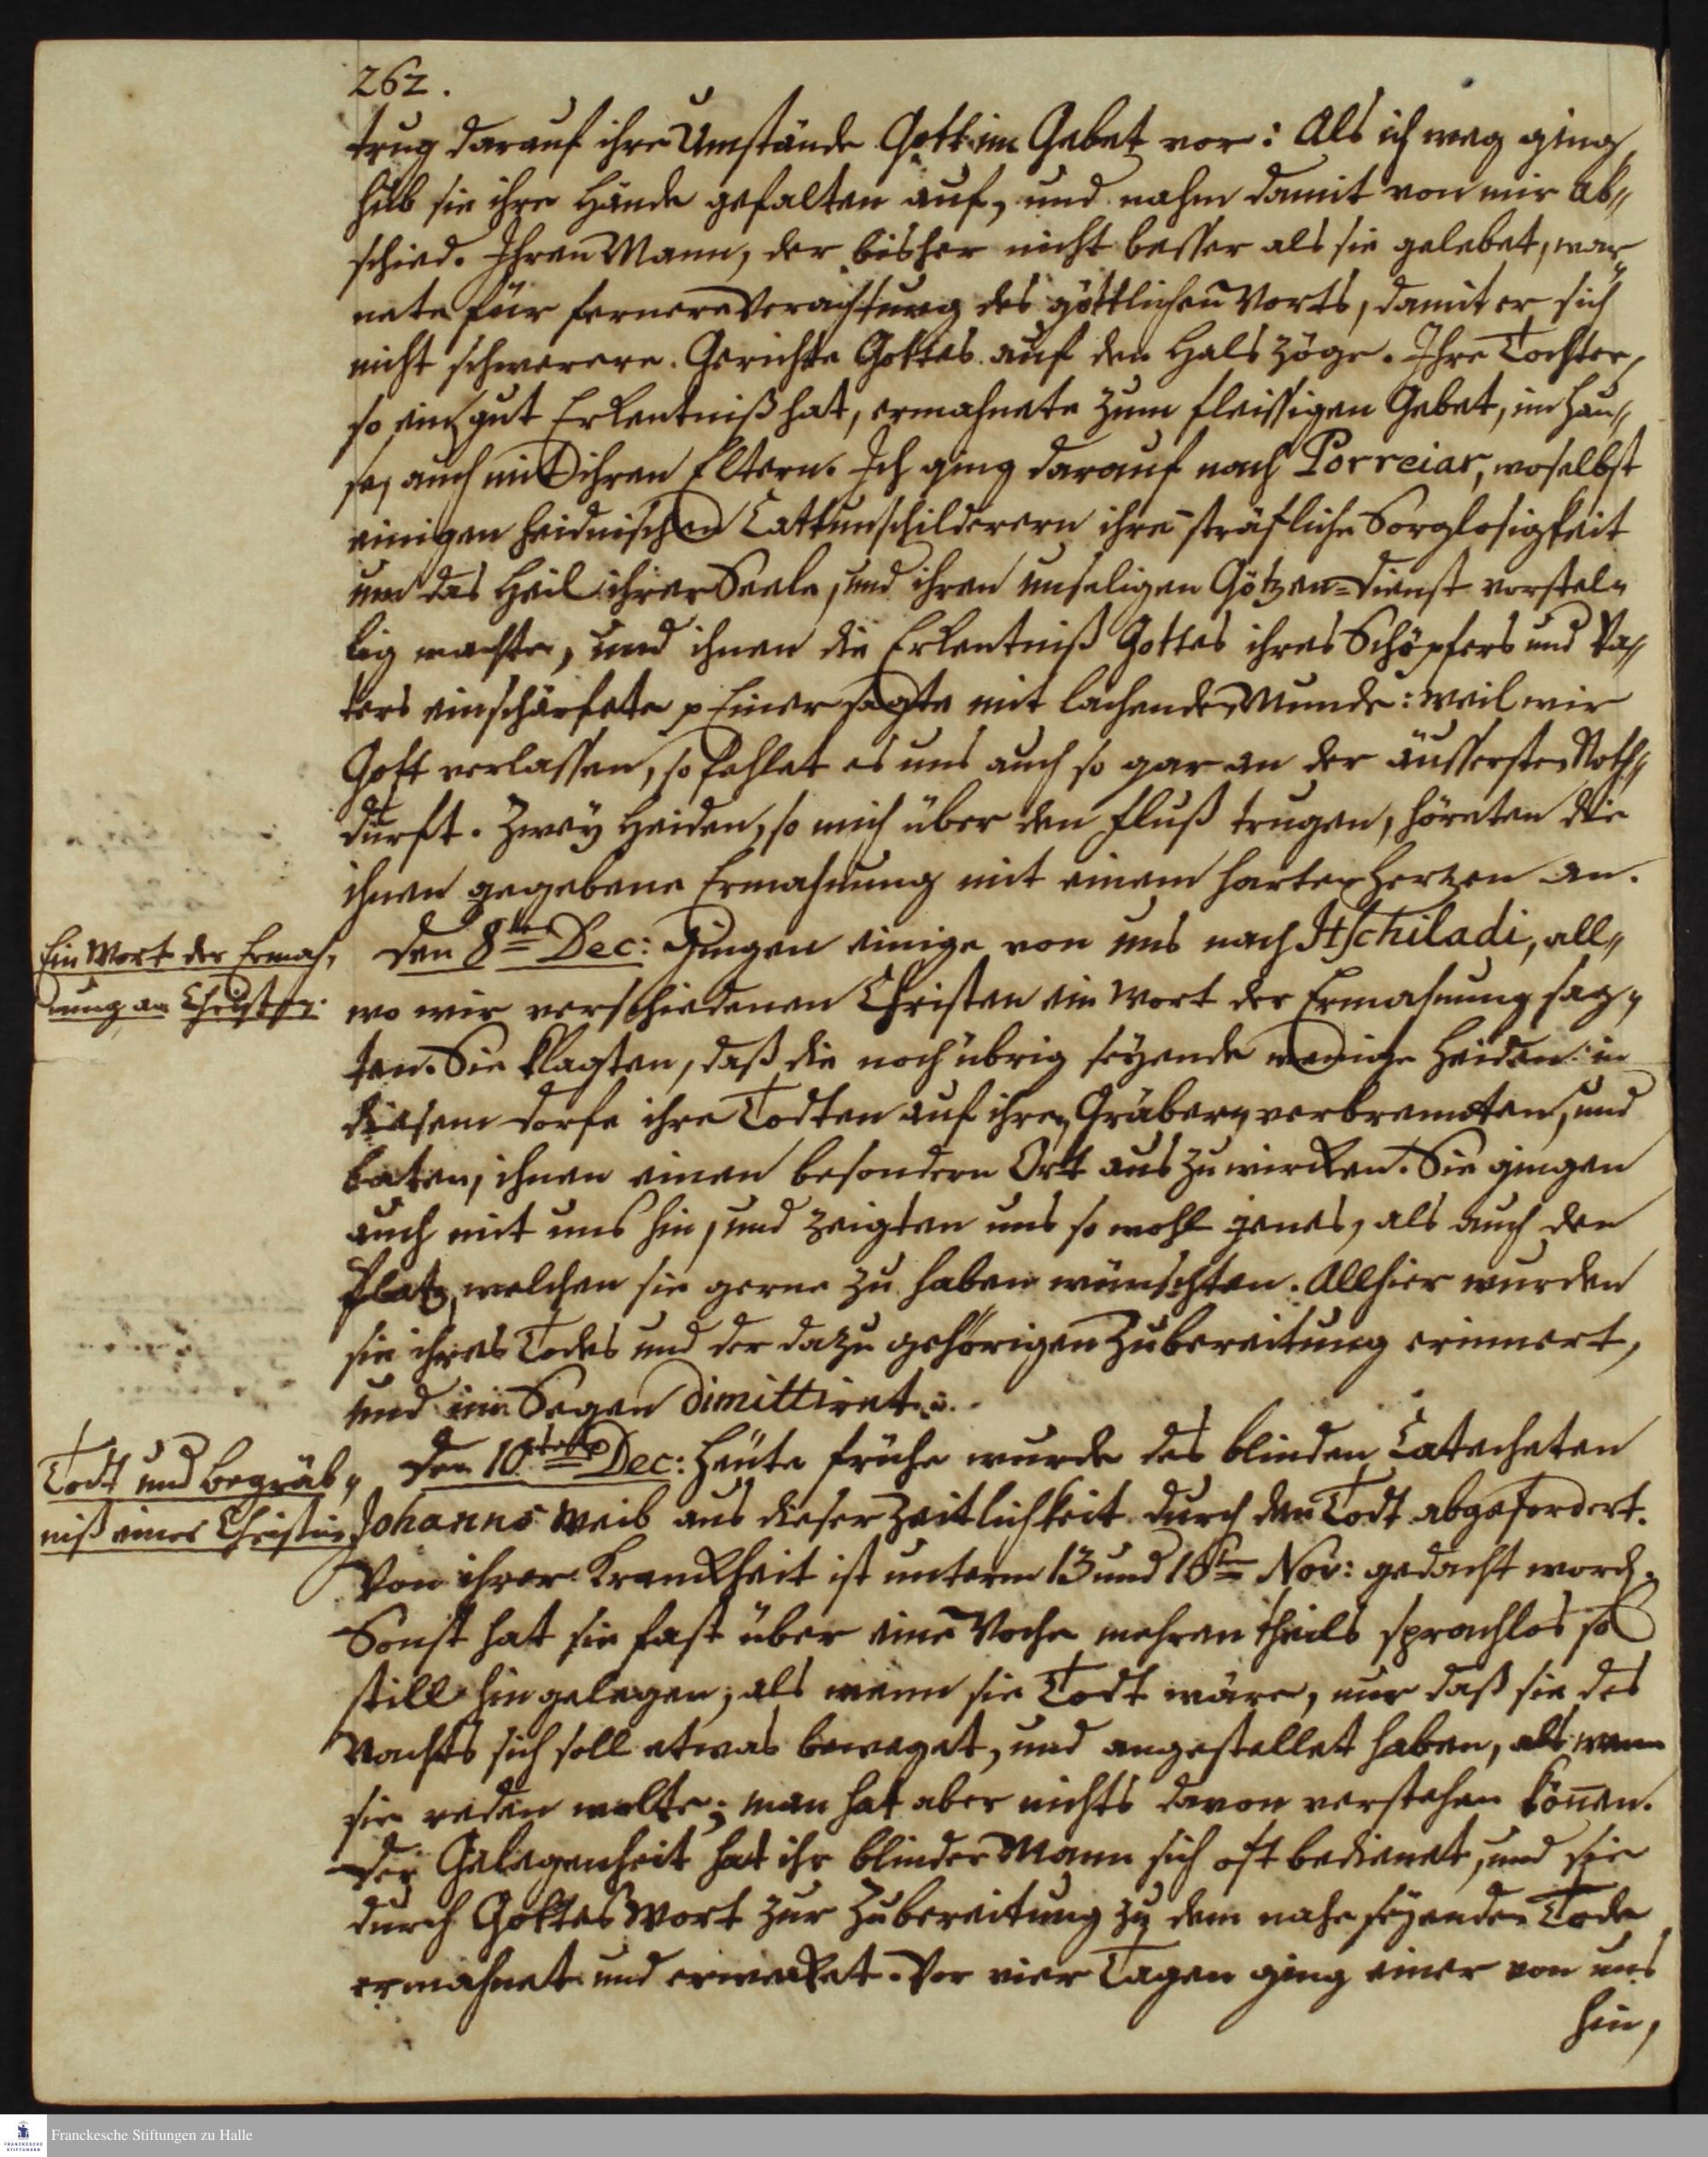 262.
trug darauf ihre Umstände Gott im Gebet vor: Als ich weg ging,
hub sie ihre Hände gefalten auf, und nahm damit von mir Ab„
schied. Ihren Mann, der bisher nicht besser als sie gelebet, war„
nete für fernere Verachtung des göttlichen Worts, damit er sich
nicht schwerere Gerichte Gottes auf den Hals zöge. Ihre Tochter,
so ein gut Erkentniß hat, ermahnete zum fleissigen Gebet, im Hau„
se, auch mit ihren Eltern. Ich ging darauf nach Porreiar, woselbst
einigen heidnischen Cattunschilderern ihre sträfliche Sorglosigkeit
um das Heil ihrer Seele, und ihren unseligen Götzen-Dienst vorstel„
lig machte, und ihnen die Erkentniß Gottes ihres Schöpfers und Va„
ters einschärfete p Einer sagte mit lachenden Munde: weil wir
Gott verlassen, so fehlet es uns auch so gar an der äussersten Noth„
durft. Zwey Heiden, so mich über den Fluß trugen, höreten die
ihnen gegebene Ermahnung mit einem harten Hertzen an.
Ein Wort der Ermah„
nung an Christen.
Den 8ten Dec: Gingen einige von uns nach Itschiladi, all„
wo wir verschiedenen Christen ein Wort der Ermahnung sag„
ten. Sie klagten, daß die noch übrig seyende wenige Heiden in
diesem Dorfe ihre Todten auf ihren Gräbern verbrennten, und
baten, ihnen einen besondern Ort auszuwircken. Sie gingen
auch mit uns hin, und zeigten uns so wohl jenes, als auch den
Platz, welchen sie gerne zu haben wünschten. Allhier wurden
sie ihres Todes und der dazu gehörigen Zubereitung erinnert,
und im Segen dimittiret.
Todt und Begräb„
niß einer Christin
Den 10ten Dec: Heute frühe wurde des blinden Catecheten
Johannes Weib aus dieser Zeitlichkeit durch den Todt abgefordert.
Von ihrer Kranckheit ist unterm 13 und 16ten Nov: gedacht word.
Sonst hat sie fast über eine Woche mehrentheils sprachlos so
still hingelegen, als wenn sie Todt wäre, nur daß sie des
Nachts sich soll etwas beweget, und angestellet haben, als wenn
sie reden wolte; man hat aber nichts davon verstehen können.
Der Gelegenheit hat ihr blinder Mann sich oft bedienet, und sie
durch Gottes Wort zur Zubereitung zu dem nahe seyenden Tode
ermahnet und erwecket. Vor vier Tagen ging einer von uns
hin,
Franckesche Stiftungen zu Halle
FRANCKESCHE
STIFTUNGEN